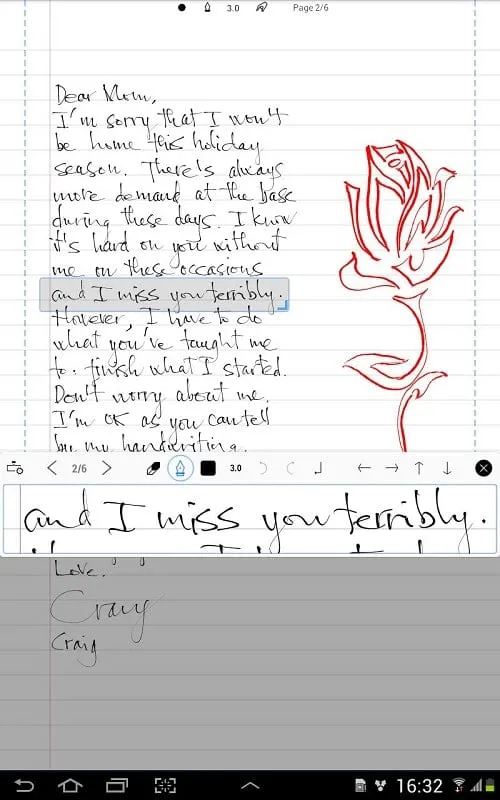 3.0 Page 2/6
Dear Mom,
I'm sorry that I won't
be home this holiday
season. There's always
more demand at the base
during these days. I know
it's hard on you without
me on these occasions
and I miss you terribly.
However, I have to do
what you've taught me
to. finish what I started.
Don't worry about me.
I'm OK as you can tell
by my handwriting.
2/6 3.0
and I miss you terribly.
Love.
Craig
Craig
16:32